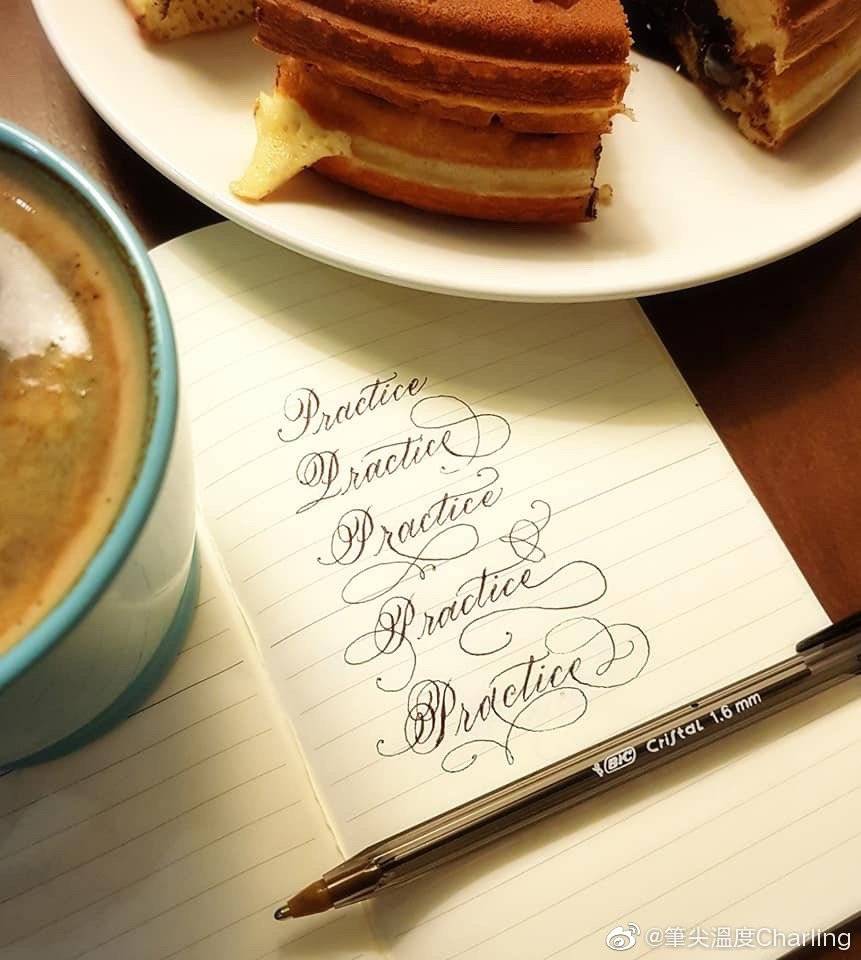 Practice
Practice
Practice
Practice
Practice
BIC Cristal 1.6 mm
@筆尖溫度Charling